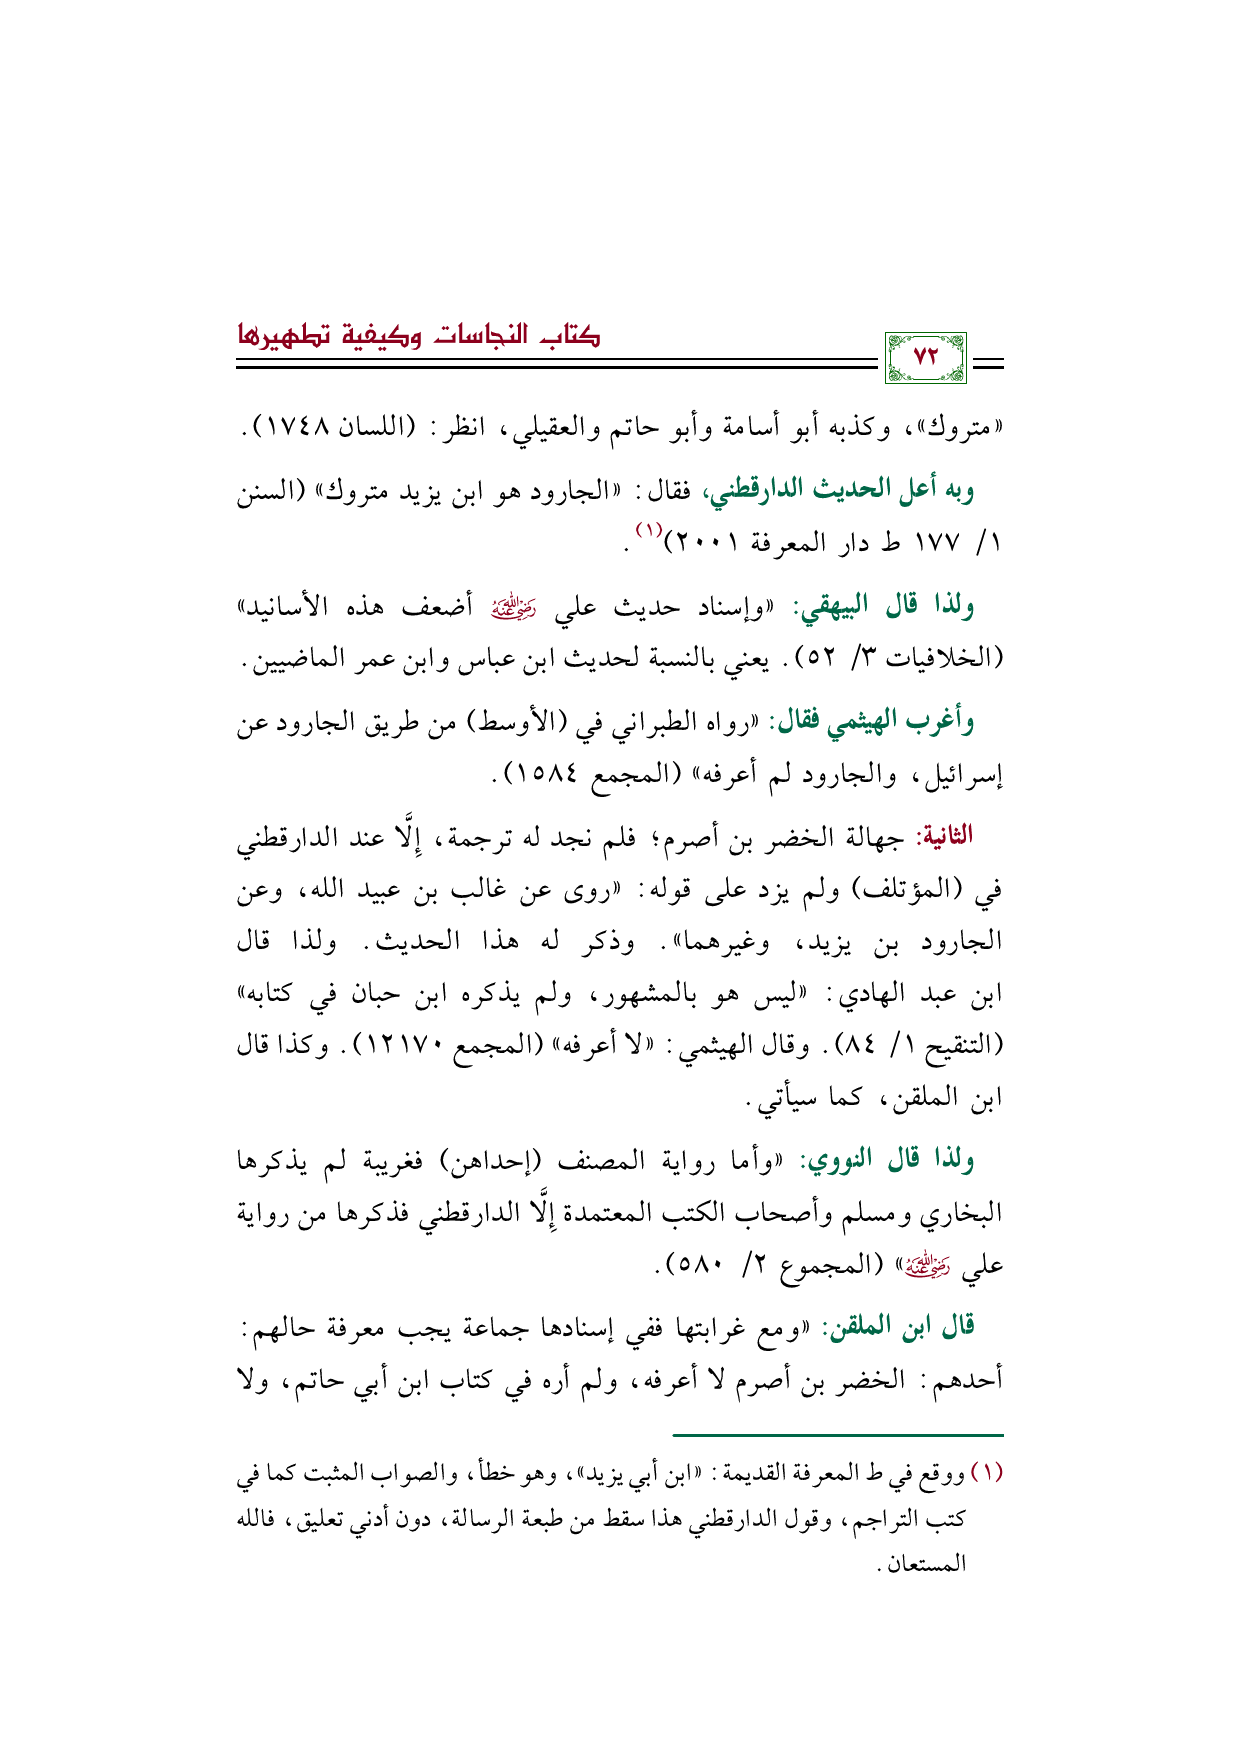 كتاب النجاسات وكيفية تطهيرها
٧٢
«متروك»، وكذبه أبو أسامة وأبو حاتم والعقيلي، انظر: (اللسان ١٧٤٨).
وبه أعل الحديث الدارقطني، فقال: «الجارود هو ابن يزيد متروك» (السنن
١/ ١٧٧ ط دار المعرفة ٢٠٠١)(١).
ولذا قال البيهقي: «وإسناد حديث علي رضي الله عنه أضعف هذه الأسانيد»
(الخلافيات ٣/ ٥٢). يعني بالنسبة لحديث ابن عباس وابن عمر الماضيين.
وأغرب الهيثمي فقال: «رواه الطبراني في (الأوسط) من طريق الجارود عن
إسرائيل، والجارود لم أعرفه» (المجمع ١٥٨٤).
الثانية: جهالة الخضر بن أصرم؛ فلم نجد له ترجمة، إِلَّا عند الدارقطني
في (المؤتلف) ولم يزد على قوله: «روى عن غالب بن عبيد الله، وعن
الجارود بن يزيد، وغيرهما». وذكر له هذا الحديث. ولذا قال
ابن عبد الهادي: «ليس هو بالمشهور، ولم يذكره ابن حبان في كتابه»
(التنقيح ١/ ٨٤). وقال الهيثمي: «لا أعرفه» (المجمع ١٢١٧٠). وكذا قال
ابن الملقن، كما سيأتي.
ولذا قال النووي: «وأما رواية المصنف (إحداهن) فغريبة لم يذكرها
البخاري ومسلم وأصحاب الكتب المعتمدة إِلَّا الدارقطني فذكرها من رواية
علي رضي الله عنه» (المجموع ٢/ ٥٨٠).
قال ابن الملقن: «ومع غرابتها ففي إسنادها جماعة يجب معرفة حالهم:
أحدهم: الخضر بن أصرم لا أعرفه، ولم أره في كتاب ابن أبي حاتم، ولا
(١) ووقع في ط المعرفة القديمة: «ابن أبي يزيد»، وهو خطأ، والصواب المثبت كما في
كتب التراجم، وقول الدارقطني هذا سقط من طبعة الرسالة، دون أدني تعليق، فالله
المستعان.